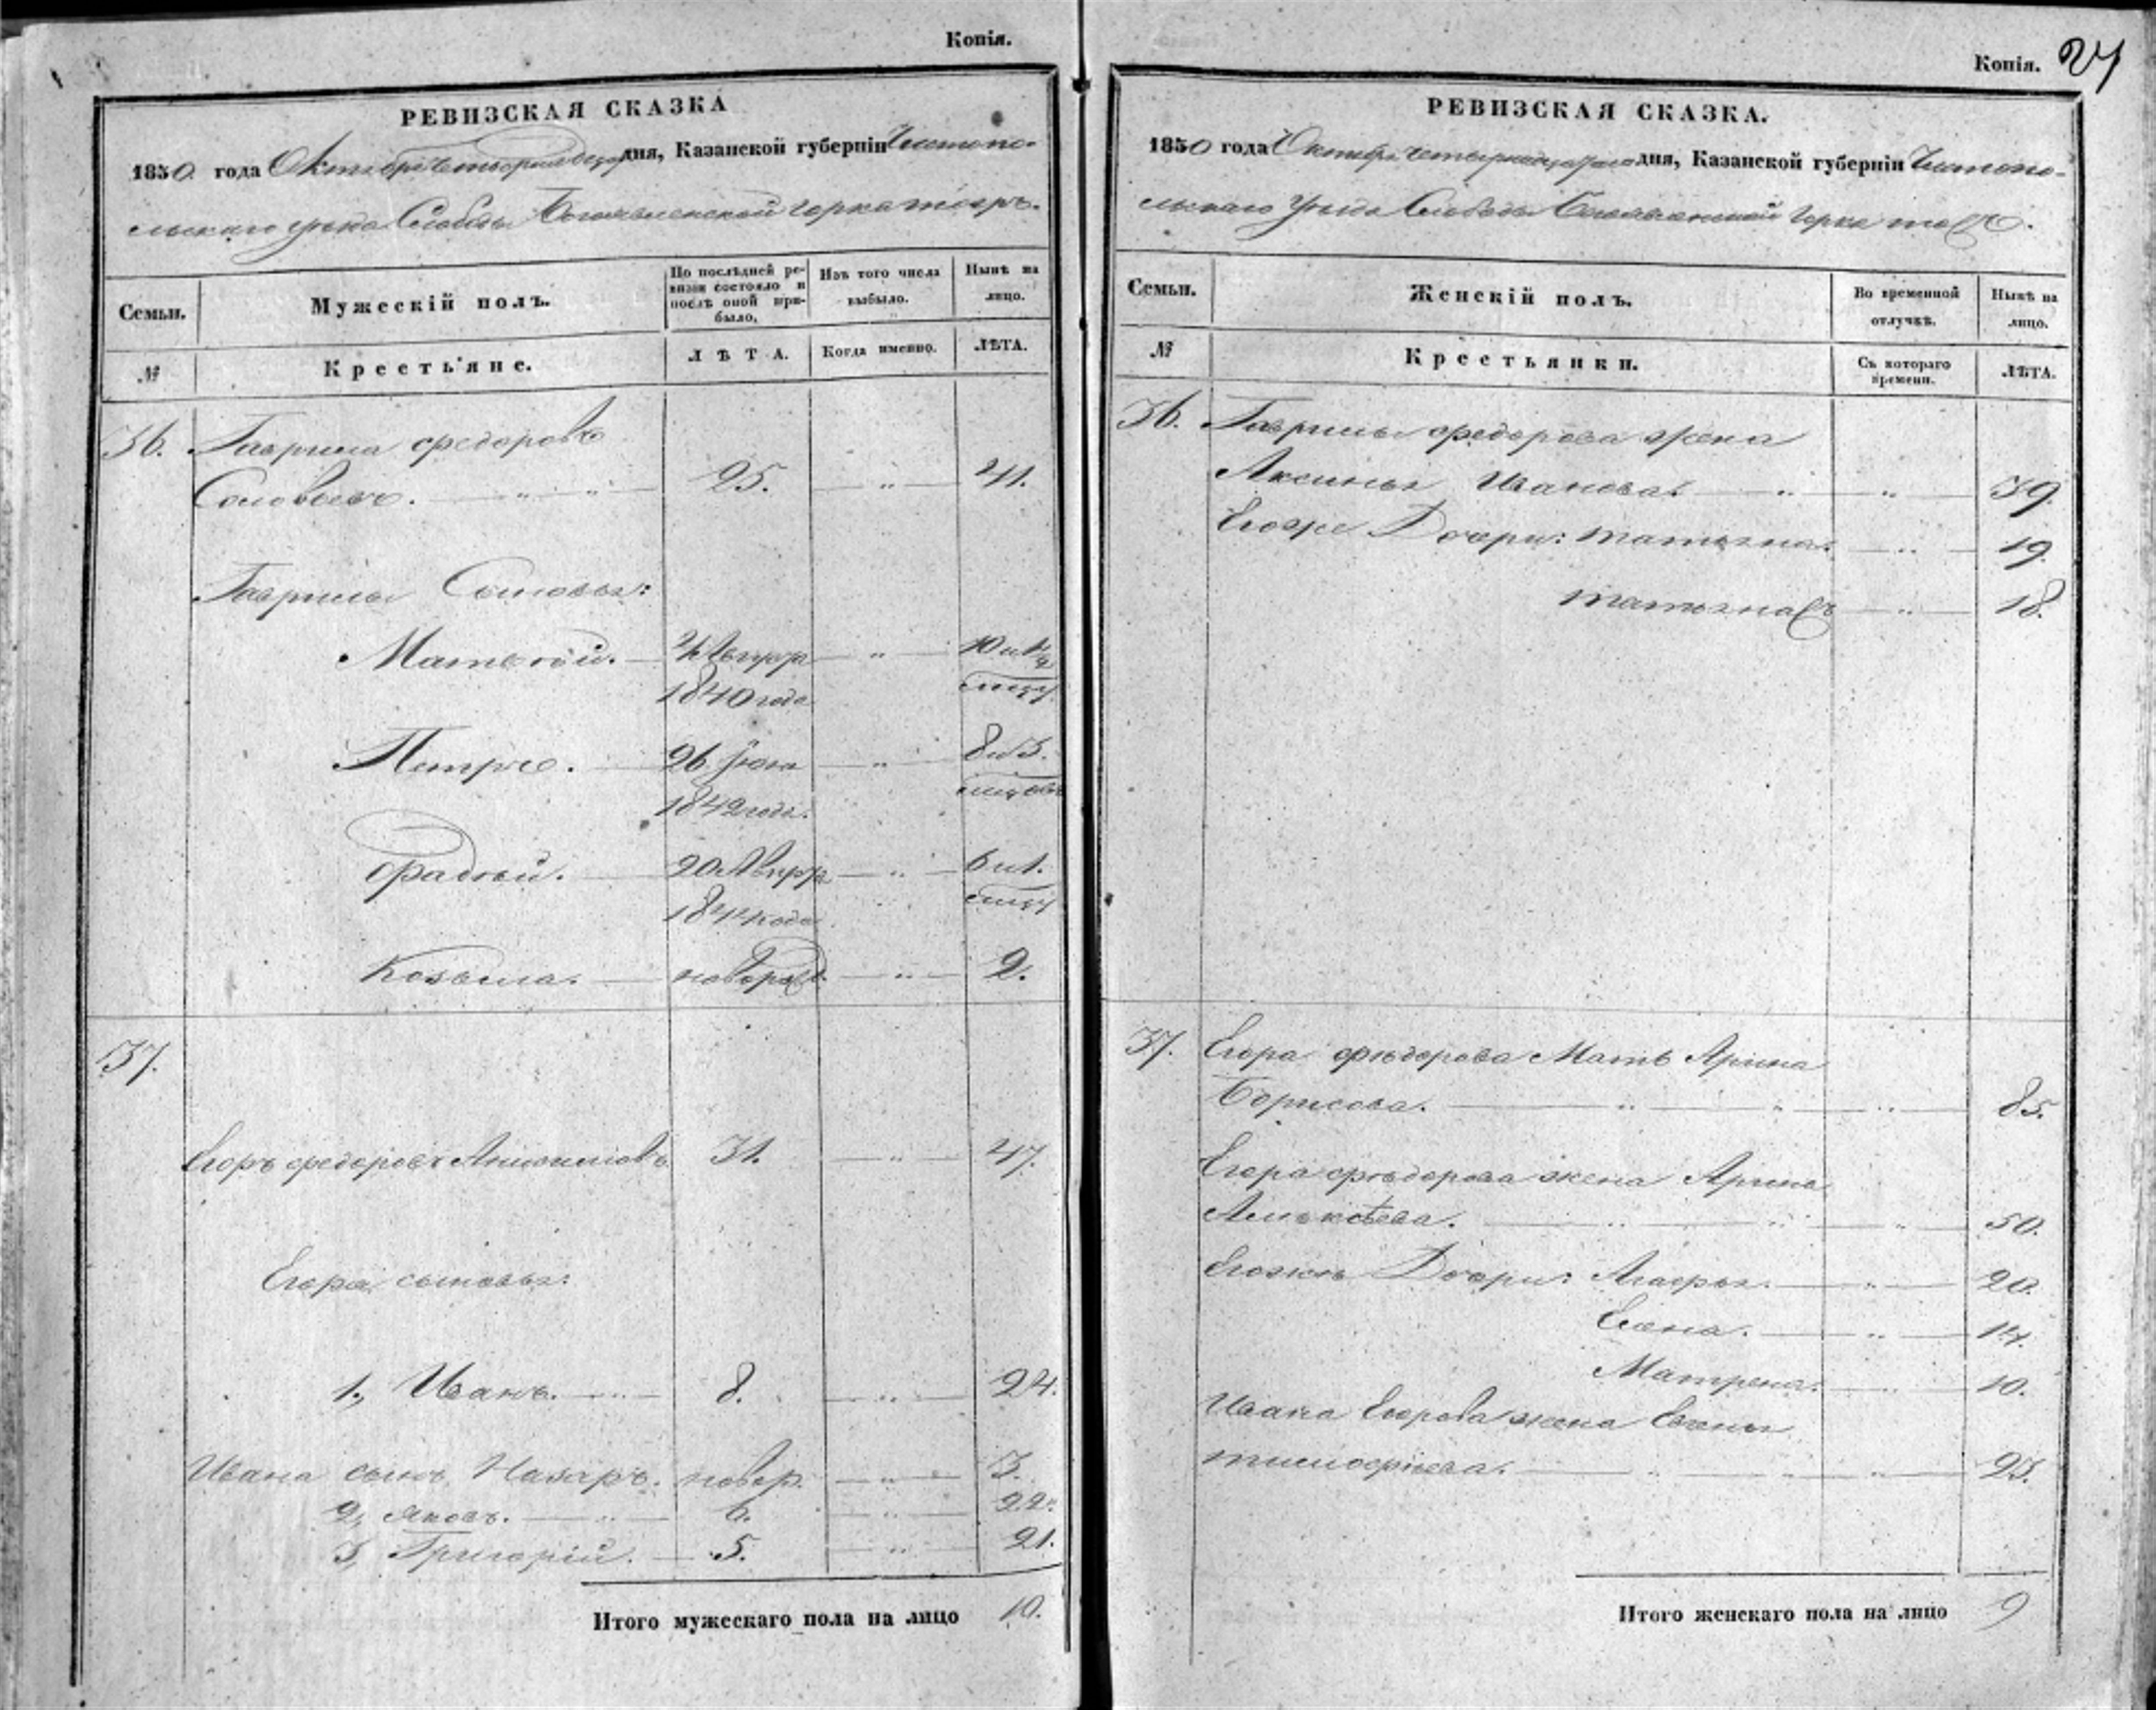 Копія.
РЕВИЗСКАЯ СКАЗКА
1850 года Октября четырнадцатого дня, Казанской губерніи Чистопо-
льскаго уезда Слободы Богоявленской горка тожъ.
Семьи. Мужескій полъ. По послѣдней ре-визіи состояло и послѣ оной при-было. Изъ того числа выбыло. Нынѣ на лицо.
№ Крестьяне. ЛѢТА. Когда именно. ЛѢТА.
36. Гаврила Федоровъ
Соловьевъ. — „ „ — 25. — „ — 41.
Гаврилы Сыновья:
Матвѣй. — 1840 года — „ —
Петръ. — 26 Іюня — „ — 8 и 3.
1842 года.
Фадѣй. — 20 — „ — 6 и 1.
1844 года
Козьма. — новорож. — „ — 2.
37.
Егоръ Федоровъ 31. — „ — 47.
Егора сыновья:
1, Иванъ. — „ — 8. — „ — 24.
Ивана сынъ Назаръ. новор. — „ — 3.
2, Яковъ. — „ — 6. — „ — 22.
3, Григорій. — 5. — „ — 21.
Итого мужескаго пола на лицо 10.
Копія. 27
РЕВИЗСКАЯ СКАЗКА.
1850 года Октября четырнадцатого дня, Казанской губерніи Чистопо-
льскаго уезда Слободы Богоявленской Горка тожъ.
Семьи. Женскій полъ. Во временной отлучкѣ. Нынѣ на лицо.
№ Крестьянки. Съ котораго времени. ЛѢТА.
36. Гаврилы Федорова жена
Аксинья Иванова. — „ — „ — 39.
Егоже Дочери: Татьяна. — „ — 19.
Татьяна — „ — 18.
37. Егора Фѣдорова Мать Арина
Борисова. — „ — „ — „ — 85.
Егора Фѣдорова жена Арина
Алексѣева. — „ — „ — „ — 50.
Егожъ Дочери: Агафья. — „ — 20.
Елена. — „ — 14.
Матрена. — „ — 10.
Ивана Егорова жена
Тимофеева. — „ — „ — „ — 23.
Итого женскаго пола на лицо 9